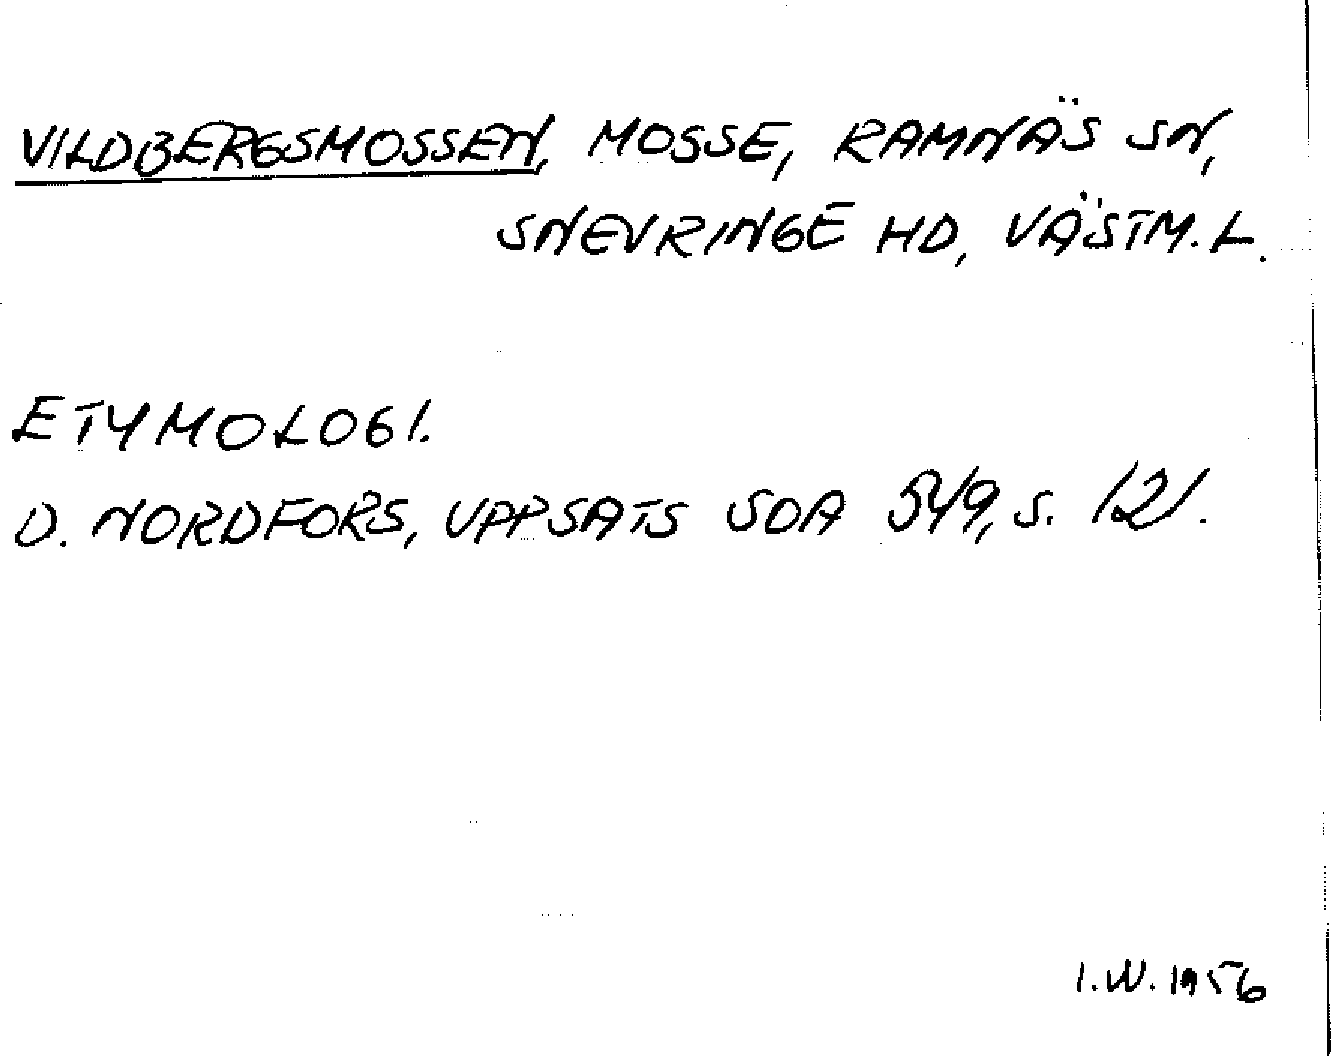 VILDBERGSMOSSEN, MOSSE, RAMNÄS SN,
SNEVRINGE HD, VÄSTM. L.
ETYMOLOGI.
D. NORDFORS, UPPSATS SOA 549, S. 121.
I.W. 1956